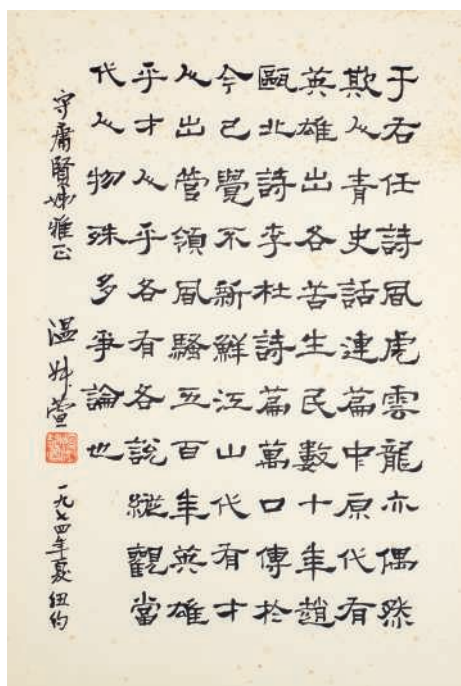 于右任詩風虎雲龍亦偶然
欺人青史話連篇中原代有
英雄出各苦生民數十年趙
甌北詩李杜詩篇萬口傳於
今已覺不新鮮江山代有才
人出管領風騷五百年英雄
乎才人乎各有各說縱觀當
代人物殊多爭論也
守庸賢姊雅正 溫叔萱 一九七四年夏紐約